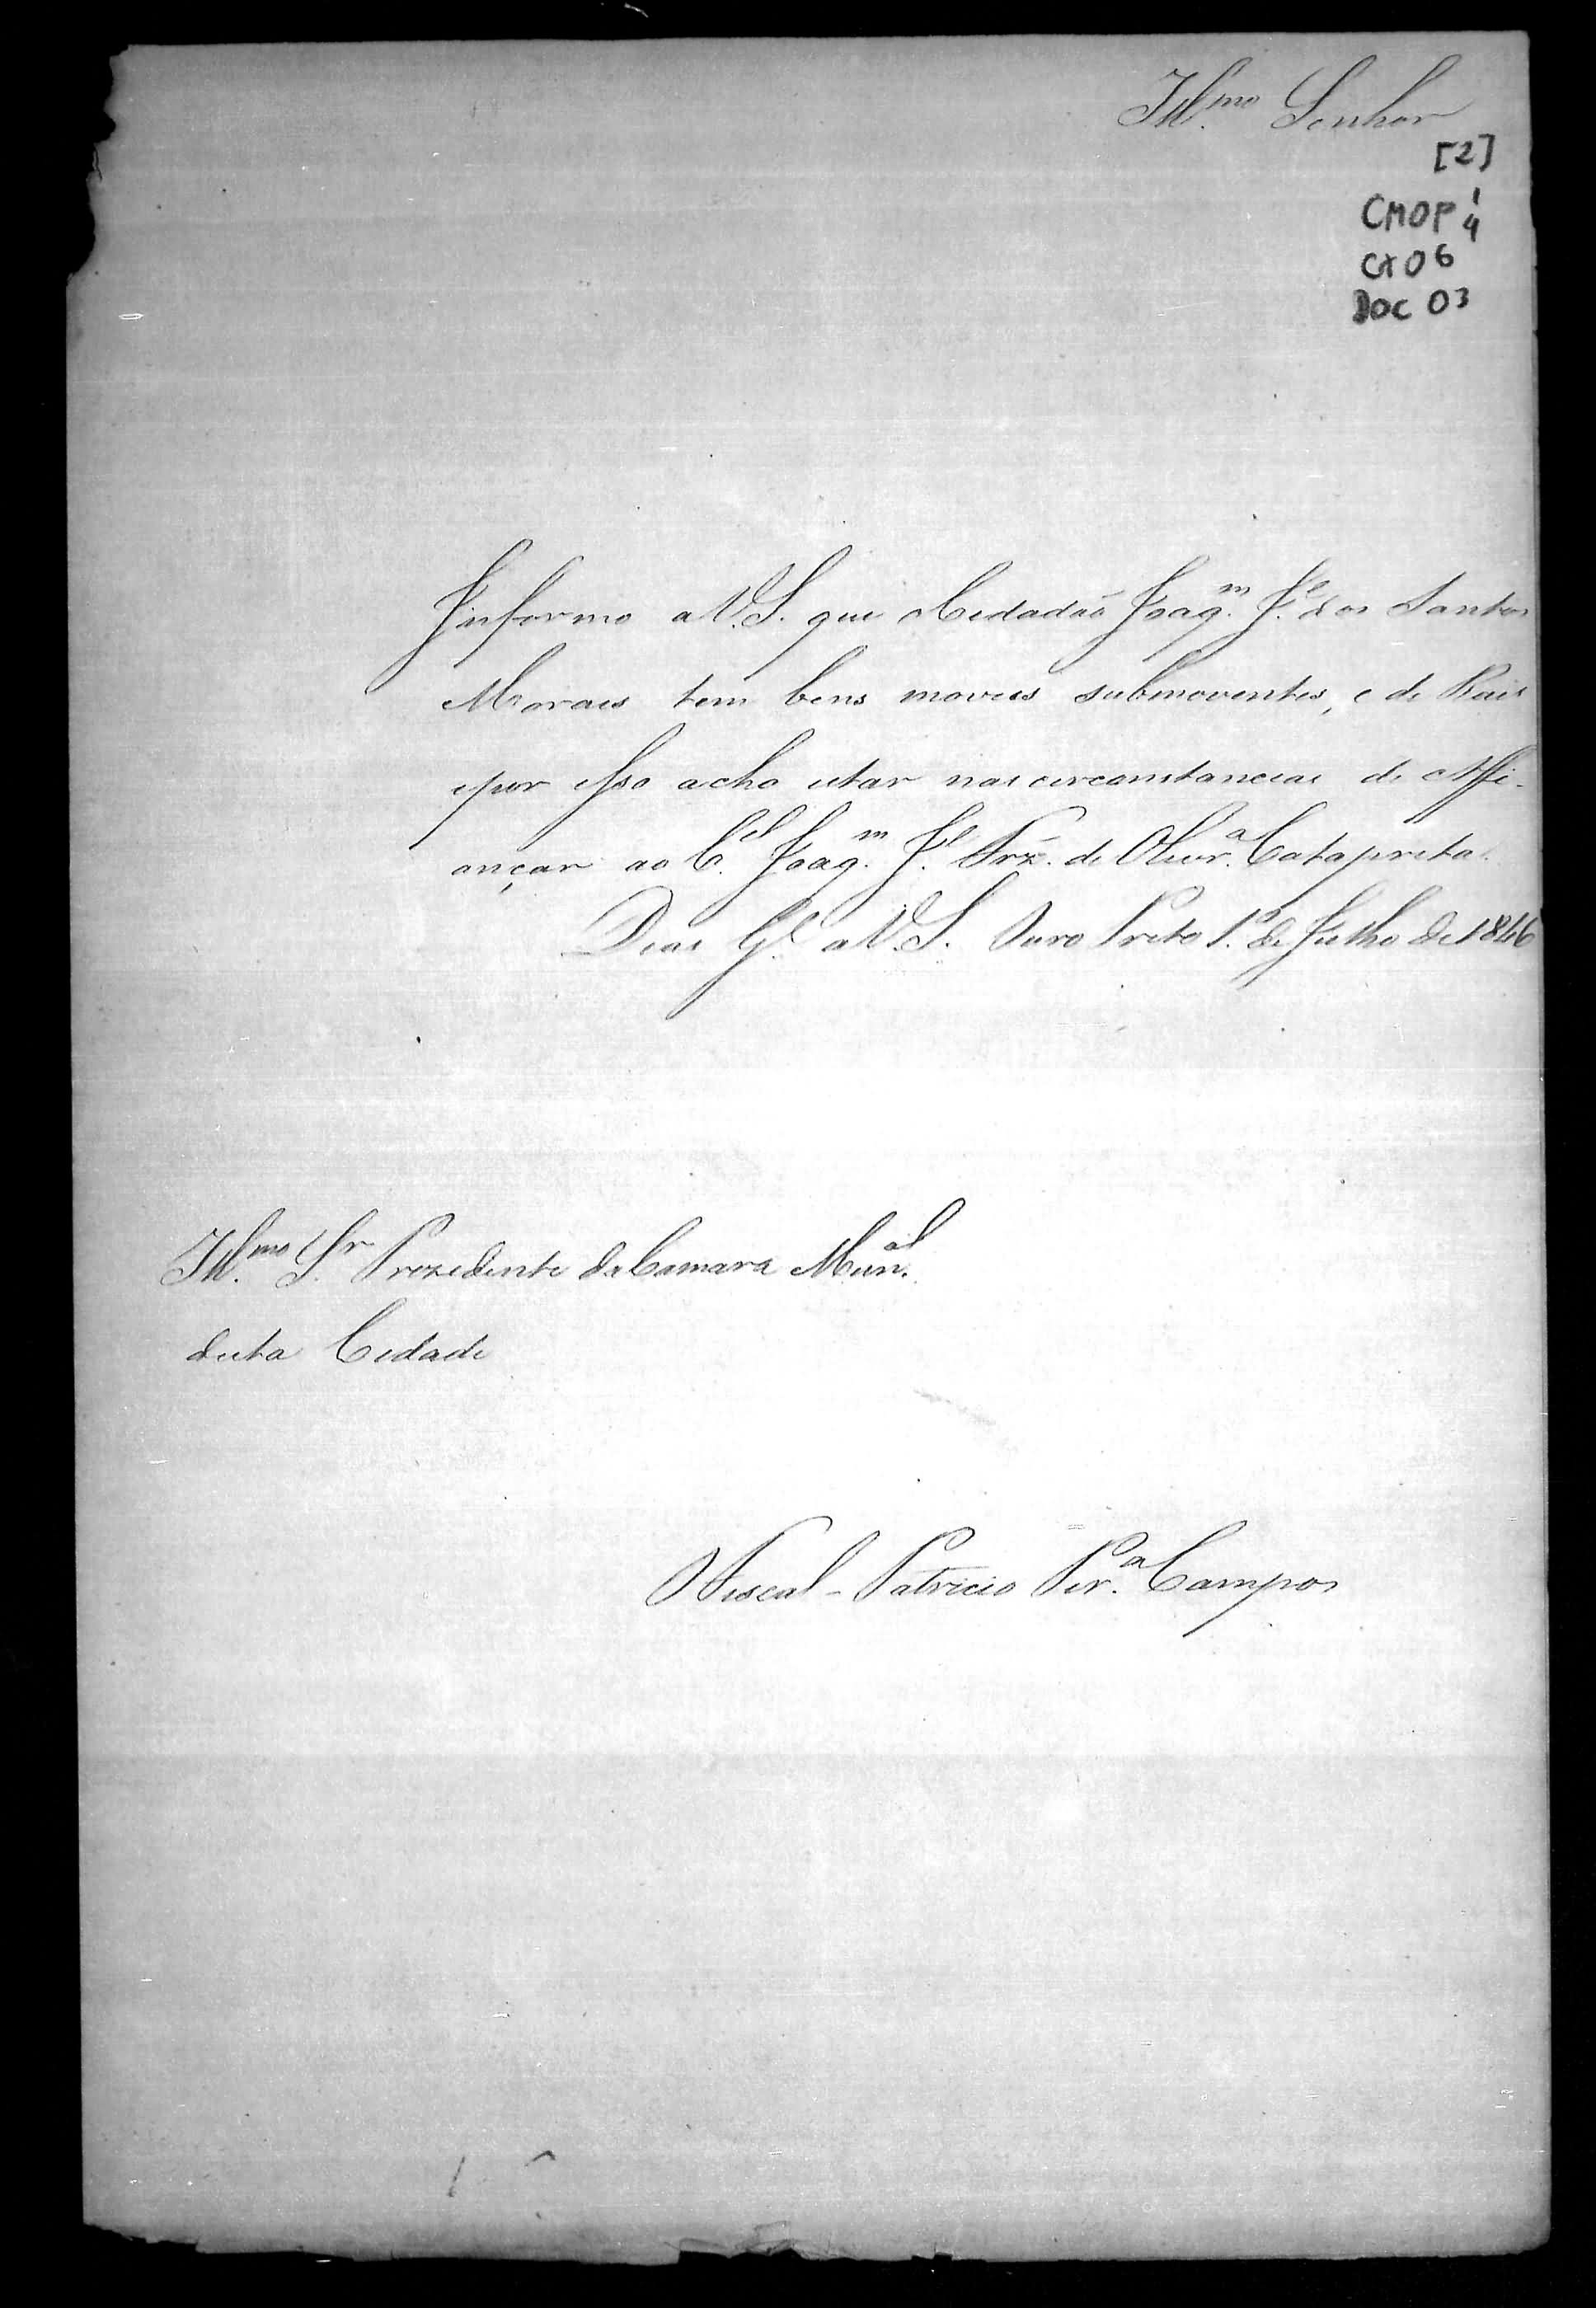 Ill.mo Senhor
[2]
CMOP 1/4
CX 06
DOC 03
Informo a V.S. que o Cidadaõ Joaq.m J.e dos Santos
Moraes tem bens moveis submoventes, e de Rais
epor isso acho estar nas circomstancias de Affi-
ançar ao C.el Joaq.m J.e Frz. de Olivr.a Catapreta.
Deos G.e a V.S. Ouro Preto 1.º de Julho de 1846
Ill.mo Sr. Prezidente da Camara Mun.al
desta Cidade
O Fiscal - Patricio Per.a Campos